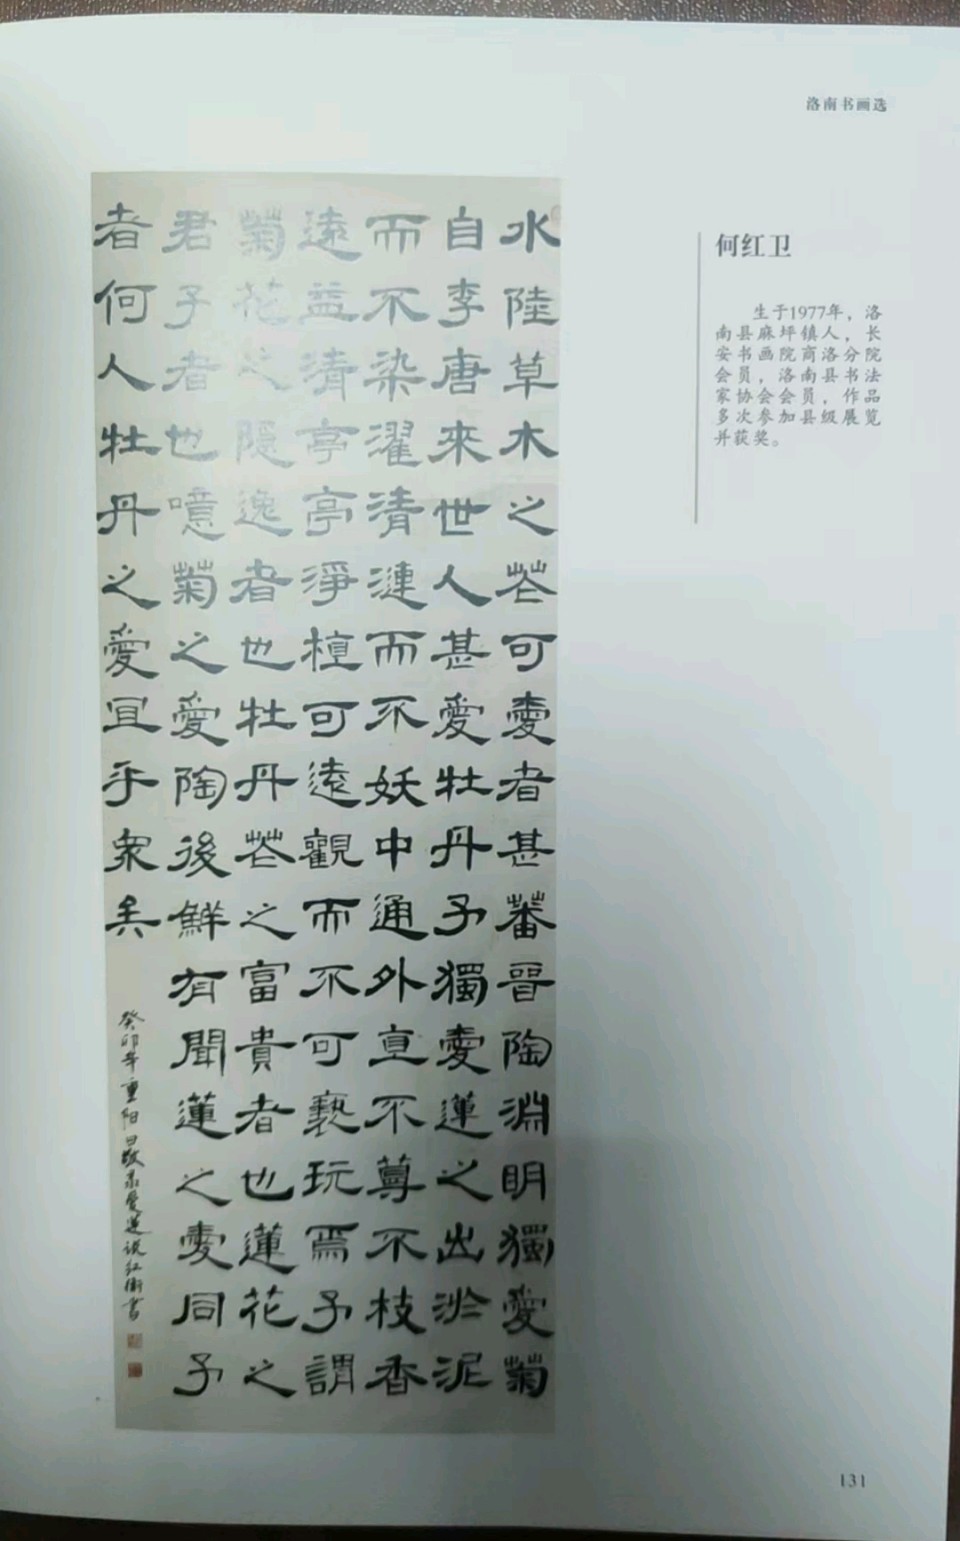 洛南书画选
何红卫
生于1977年，洛
南县麻坪镇人，长
安书画院商洛分院
会员，洛南县书法
家协会会员，作品
多次参加县级展览
并获奖。
水陸草木之花可愛者甚蕃晉陶淵明獨愛菊
自李唐來世人甚愛牡丹予獨愛蓮之出淤泥
而不染濯清漣而不妖中通外直不蔓不枝香
遠益清亭亭淨植可遠觀而不可褻玩焉予謂
菊花之隱逸者也牡丹花之富貴者也蓮花之
君子者也噫菊之愛陶後鮮有聞蓮之愛同予
者何人牡丹之愛宜乎眾矣
癸卯年重阳日敬录爱莲说红衛書
131